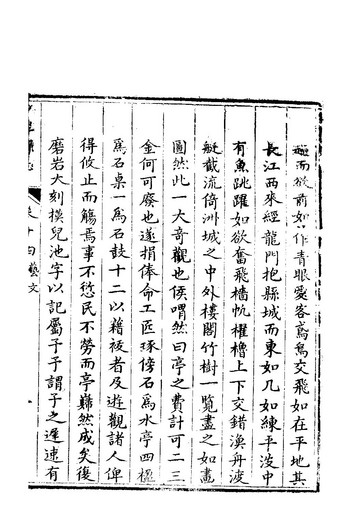 而欲前如作青眼愛客鳶鳥交飛如在平地其
長江西來經龍門抱縣城而東如几如練平波中
有魚跳躍如欲奮飛檣帆櫂櫓上下交錯漁舟渡
艇截流倚洲城之中外樓閣竹樹一覽盡之如畫
圖然此一大奇觀也侯喟然曰亭之費計可二三
金何可廢也遂捐俸命工匠琢傍石為水亭四楹
為石桌一為石鼓十二以藉被者及遊觀諸人俾
得攸止而觴焉事不愆民不勞而亭巋然成矣復
磨岩大刻摸兒池字以記屬予予謂子之遲速有
卷十四藝文